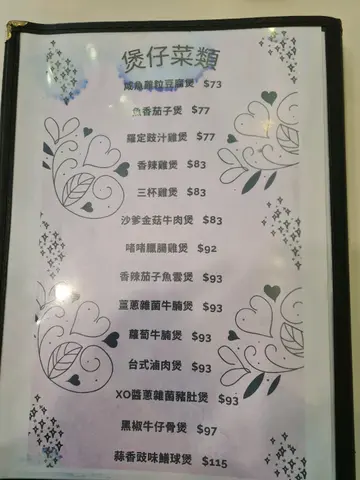 煲仔菜類
咸魚雞粒豆腐煲 $73
魚香茄子煲 $77
羅定豉汁雞煲 $77
香辣雞煲 $83
三杯雞煲 $83
沙爹金菇牛肉煲 $83
啫啫臘腸雞煲 $92
香辣茄子魚雲煲 $93
薑蔥雜菌牛腩煲 $93
蘿蔔牛腩煲 $93
台式滷肉煲 $93
XO醬蔥雜菌豬肚煲 $93
黑椒牛仔骨煲 $97
蒜香豉味鱔球煲 $115